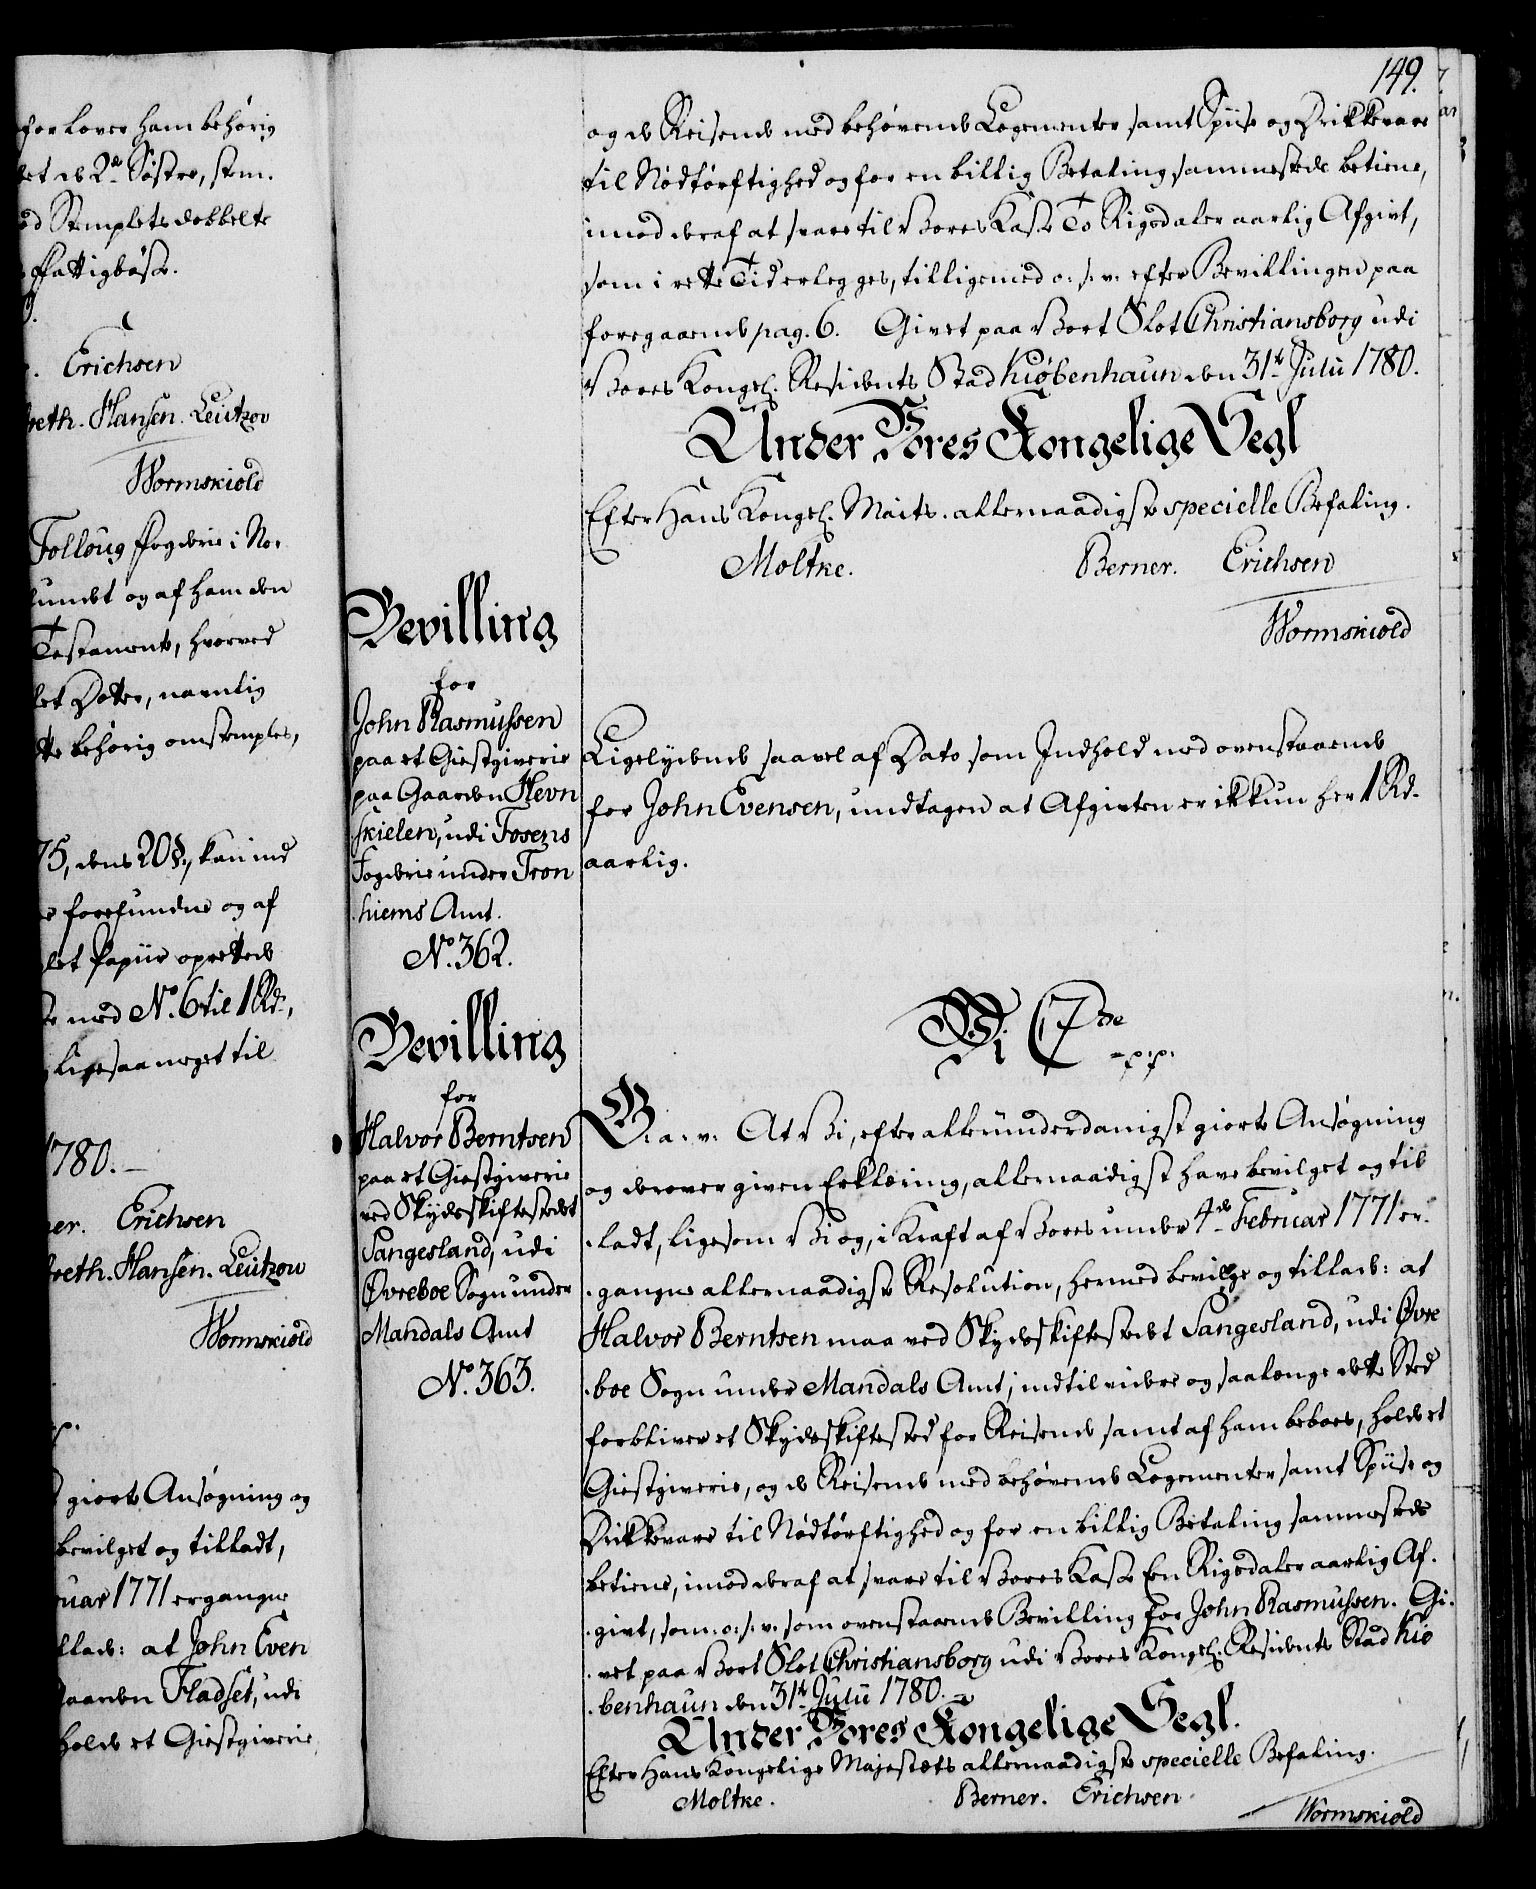 forlover ham behørig
et de 2de Söstre, stem-
ed Stemplets dobbelte
Fattigbösse.
Erichsen
reth. Hansen. Leützov
Wormskiold
Tolloug Fogderie i No-
lundet og af ham den
Testamente, hvorved
let Dotter, navnlig
tte behörig omstemples,
75, dens 20 §., kan ind
e forefundne og af
let Papiir oprettede
te med No. 6 til 1 Rd.,
ligesaa noget til
1780.—
er. Erichsen
reth. Hansen. Leützow
Wormskiold
p.
giorte Ansøgning og
bevilget og tilladt,
ruar 1771 ergangne
llade: at John Even
Gaarden Fladset, udi
holde et Giestgiverie
Bevilling
for
John Rasmussen
paa et Giestgiverie
paa Gaarden Hevn
skielen, udi Fosens
Fogderie under Tron
hiems Amt.
No. 362.
Bevilling
for
Halvor Berntsen
paa et Giestgiverie
ved Skydsskiftestedet
Sangesland, udi
Øvreboe Sogn under
Mandals Amt
No. 363.
149.
og de Reisende med behøvende Logementer samt Spiise og Drikkevare
til Nødtørftighed og for en billig Betaling sammestede betiene,
imod deraf at svare til Vores Kasse To Rigsdaler aarlig Afgivt,
som i rette Tid erlegges, tilligemed o. s. v. efter Bevillingen paa
foregaaende pag. 6. Givet paa Vort Slot Christiansborg udi
Vores Kongel. Residents Stad Kiøbenhaun den 31te Julii 1780.
Under Vores Kongelige Segl
Efter Hans Kongel. Maits. allernaadigste specielle Befaling.
Moltke. Berner. Erichsen
Wormskiold
Ligelydende saavel af Dato som Indhold med ovenstaaende
for John Evensen, undtagen at Afgivten er ikkun her 1 Rd.
aarlig.
Vi C 7de
-p.p.
G. a. v. At Vi, efter alleründerdanigst giorte Ansøgning
og derover given Erklæring, allernaadigst have bevilget og til
ladt, ligesom Vi og, i Kraft af Vores under 4de Februar 1771 er-
gangne allernaadigste Resolution, hermed bevilge og tillade: at
Halvor Berntsen maa ved Skydsskiftestedet Sangesland, udi Øvre
boe Sogn under Mandals Amt, indtil videre og saalænge dette Sted
forbliver et Skydsskiftested for Reisende samt af ham beboes, holde et
Giestgiverie, og de Reisende med behøvende Logementer samt Spiise og
Drikkevare til Nødtørftighed og for en billig Betaling sammestede
betiene, imod deraf at svare til Vores Kasse Een Rigsdaler aarlig Af-
givt, som o. s. v. som ovenstaaende Bevilling for John Rasmussen. Gi-
vet paa Vort Slot Christiansborg udi Vores Kongel. Residents Stad Kiø
benhaun den 31te Julii 1780.
Under Vores Kongelige Segl.
Efter Hans Kongelige Majestæts allernaadigste specielle Befaling.
Moltke. Berner. Erichsen
Wormskiold